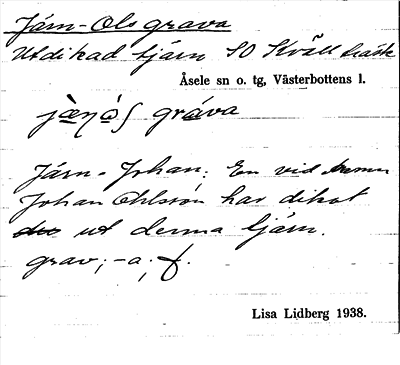 Järn-Ols grava
Utdikad tjärn SO Kvällträsk
Åsele sn o. tg, Västerbottens l.
gráva
Järn-Johan; En vid namn
Johan Ohlsson har dikat
ut denna tjärn.
grav; -a; f.
Lisa Lidberg 1938.